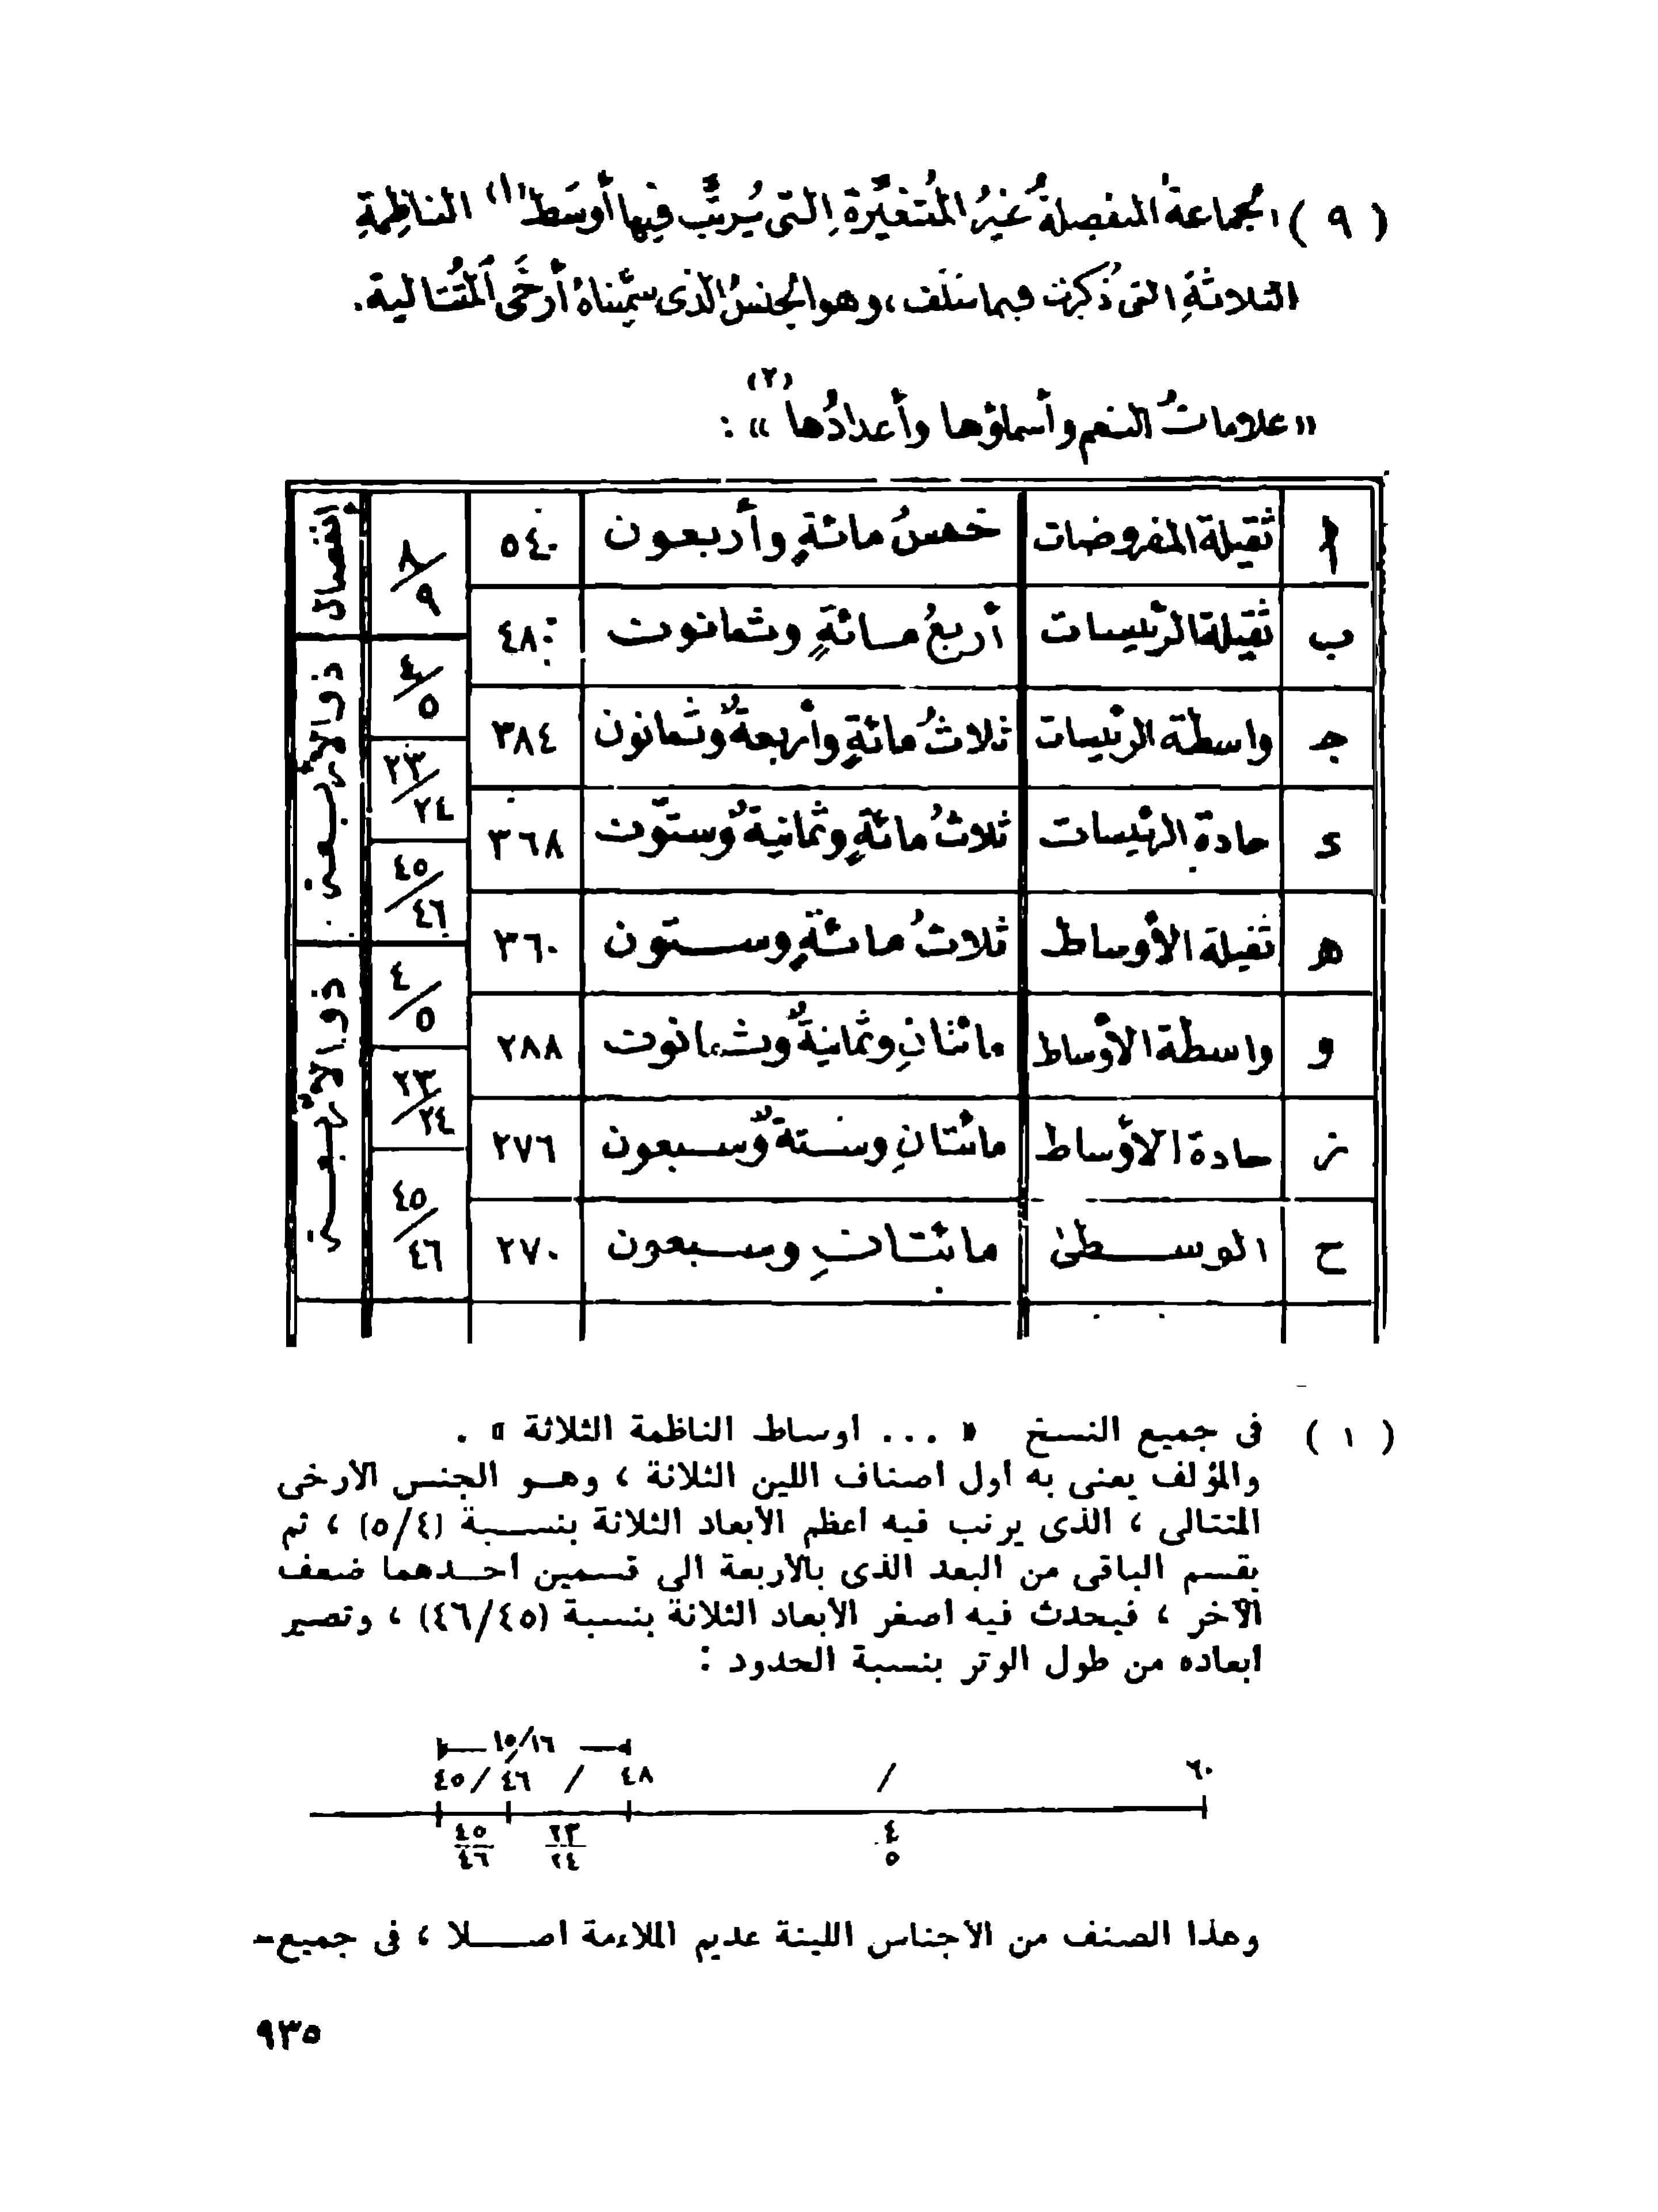 ( ٩ ) الجماعة المنفصلةُ غيرُ المُتغيِّرةِ التى يُرتَّب فيها أوسَط (١) الناظِمةِ
الثلاثةِ التى ذُكِرت فيما سَلَف ، وهو الجنسُ الذى سمَّيناهُ أرخَى المُتَتالية .
« علاماتُ النغم وأسماؤها وأعدادُها (٢) » :
أ ثقيلة المفروضات خمسُ مائةٍ وأربعون ٥٤٠
ب ثقيلة الرئيسات أربعُ مائةٍ وثمانون ٤٨٠
جـ واسطة الرئيسات ثلاثُ مائةٍ وأربعةٌ وثمانون ٣٨٤
د حادة الرئيسات ثلاثُ مائةٍ وثمانيةٌ وستون ٣٦٨
هـ ثقيلة الأوساط ثلاثُ مائةٍ وستون ٣٦٠
و واسطة الأوساط مائتانِ وثمانيةٌ وثمانون ٢٨٨
ز حادة الأوساط مائتانِ وستةٌ وسبعون ٢٧٦
ح الوسطى مائتانِ وسبعون ٢٧٠
٨/٩
٤/٥
٢٣/٢٤
٤٥/٤٦
٤/٥
٢٣/٢٤
٤٥/٤٦
إنفصال
ذو الأربعة
ذو الأربعة
( ١ ) فى جميع النسخ « ... اوساط الناظمة الثلاثة » .
والمؤلف يعنى به أول أصناف اللين الثلاثة ، وهو الجنس الأرخى
المتتالى ، الذى يرتب فيه أعظم الأبعاد الثلاثة بنسبة (٥/٤) ، ثم
يقسم الباقى من البعد الذى بالأربعة الى قسمين أحدهما ضعف
الآخر ، فيحدث فيه أصغر الأبعاد الثلاثة بنسبة (٤٦/٤٥) ، وتصير
أبعاده من طول الوتر بنسبة الحدود :
١٥/١٦
٤٥ / ٤٦ / ٤٨ / ٦٠
٤٥/٤٦ ٢٣/٢٤ ٤/٥
وهذا الصنف من الأجناس اللينة عديم الملاءمة أصلا ، فى جميع-
٩٣٥